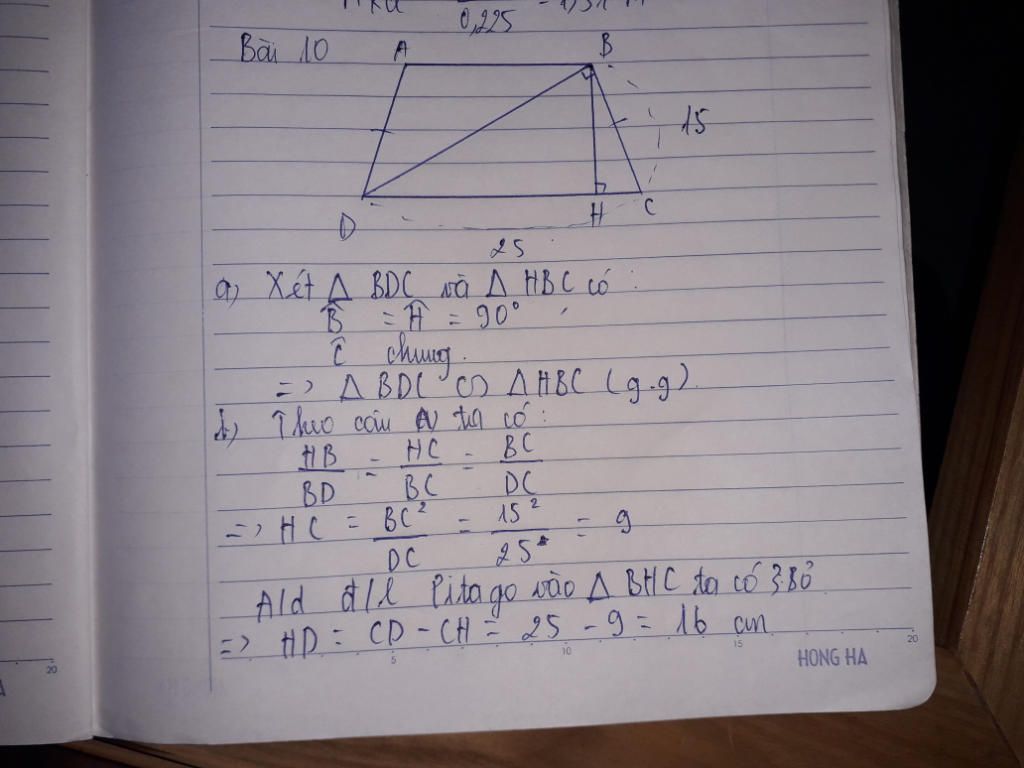 0,225
Bài 10
A
B
15
D
H
C
25
a) Xét Δ BDC và Δ HBC có :
B̂ = Ĥ = 90°
Ĉ chung.
=> Δ BDC ∽ Δ HBC (g.g)
b) Theo câu a ta có :
HB/BD = HC/BC = BC/DC
=> HC = BC²/DC = 15²/25 = 9
A/d đ/l Pitago vào Δ BHC ta có
=> HD = CD - CH = 25 - 9 = 16 cm
5 10 15 20
HONG HA
20
A